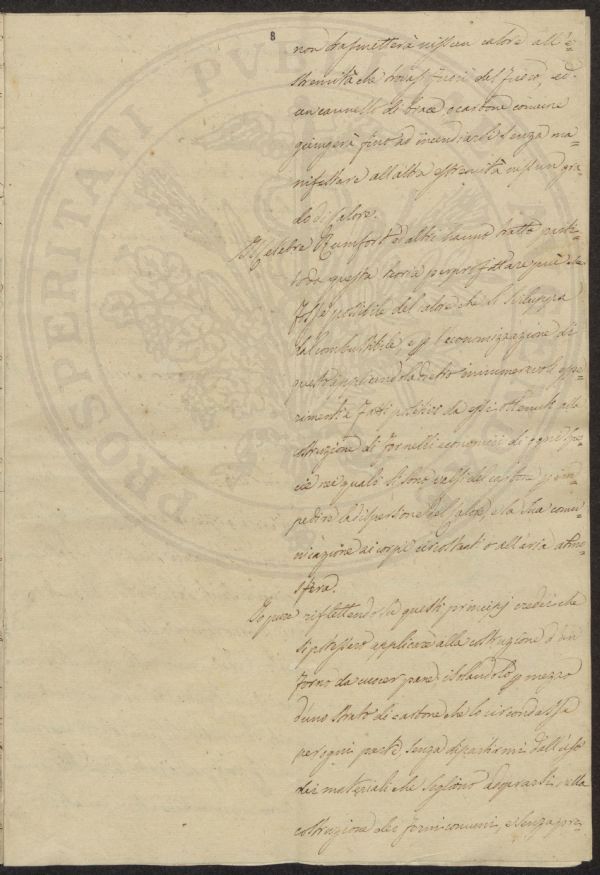 8
non trasmetterà nissun calore all'e=
stremità che trovasi fuori del fuoco, ed
un cannello di brace o carbone comune
giungerà fino ad incendiarsi senza ma=
nifestare all'altra estremità nissun gra=
do di calore.
Il Celebre Rumfort ed altri hanno tratto partito
da questa teoria per profittare più che
fosse possibile del calore che si sviluppa
dal combustibile, e p l'economizzazione di
questo applicando dietro innumerevoli espe=
rimenti e fatti positivi da essi ottenuti alla
costruzione di fornelli economici di ogni spe=
cie nei quali si sono valsi del carbone p im=
pedire la dispersione del calore, e la sua comu=
nicazione ai corpi circostanti o all'aria atmo=
sfera.
Io pure riflettendo su questi principj credei che
si potessero applicare alla costruzione d'un
forno da cuocer pane, isolandolo p mezzo
d'uno strato di carbone che lo circondassa
per ogni parte, senza dipartirmi dall'uso
dei materiali che sogliono adoprarsi nella
costruzione dei forni comuni, e senza pre=
PROSPERITATI PVBLICAE